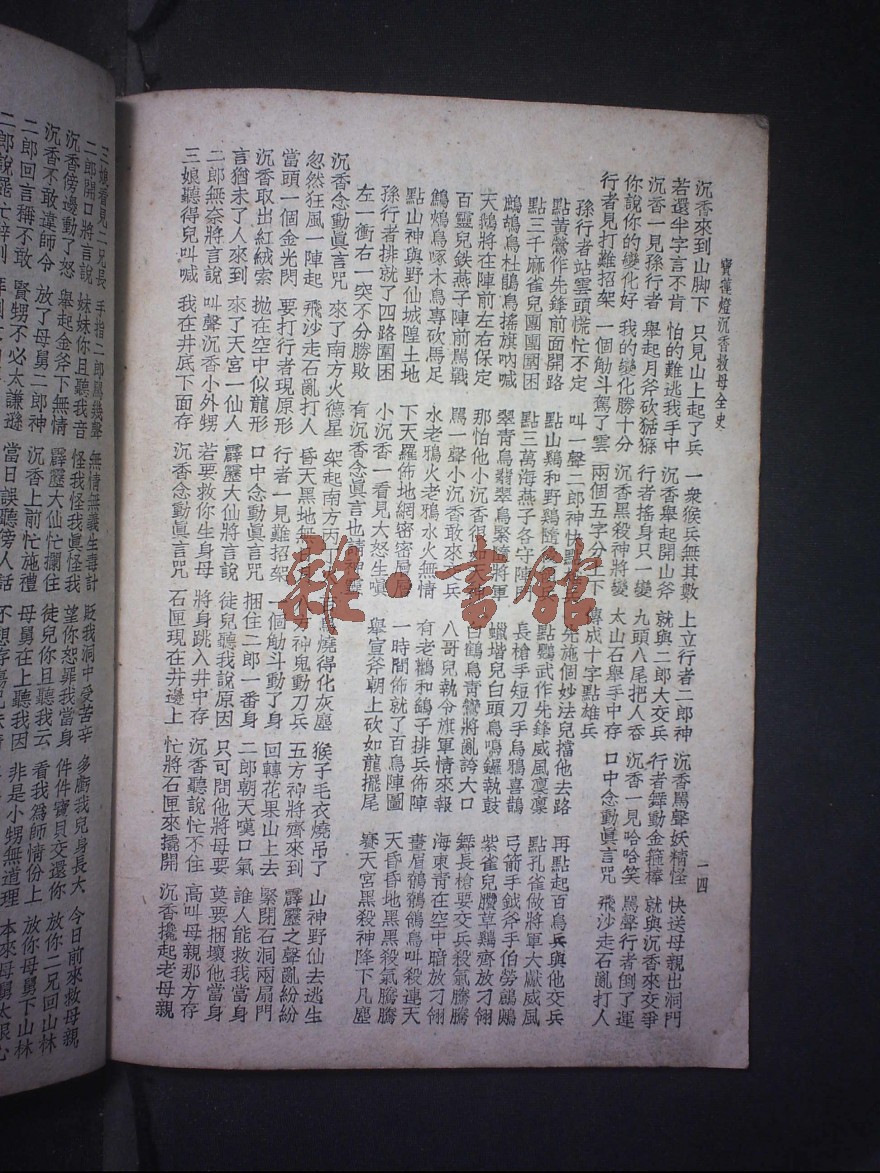 寶蓮燈沉香救母全史 一四
沉香來到山脚下 只見山上起了兵 一衆猴兵無其數 上立行者二郎神 沉香罵聲妖精怪 快送母親出洞門
若還半字言不肯 怕的難逃我手中 沉香舉起開山斧 就與二郎大交兵 行者舞動金箍棒 就與沉香來交爭
沉香一見孫行者 舉起月斧砍猻猻 行者搖身只一變 九頭八尾把人吞 沉香一見哈哈笑 罵聲行者倒了運
你說你的變化好 我的變化勝十分 沉香黑殺神將變 太山石舉手中存 口中念動眞言咒 飛沙走石亂打人
行者見打難招架 一個觔斗駕了雲 兩個五字分上下 傳成十字點雄兵
孫行者站雲頭慌忙不定 叫一聲二郎神快點 先施個妙法兒擋他去路 再點起百鳥兵與他交兵
點黃鶯作先鋒前面開路 點山鷄和野鷄隨 兵 點鸚武作先鋒威風凜凜 點孔雀做將軍大獻威風
點三千麻雀兒團團國困 點三萬海燕子各守陣門 長槍手短刀手烏鴉喜鵲 弓箭手鉞斧手伯勞鸕鷀
鷓鴣鳥杜鵑鳥搖旗吶喊 翠青鳥翡翠鳥緊隨將軍 蠟喈兒白頭鳥鳴鑼執鼓 紫雀兒臘草鷄齊放刁翎
天鵝將在陣前左右保定 那怕他小沉香很如天神 白鶴鳥青鸞將亂誇大口 舞長槍要交兵殺氣騰騰
百靈兒鉄燕子陣前罵戰 罵一聲小沉香敢來交兵 八哥兒執令旗軍情來報 海東青在空中暗放刁翎
鷦鷯鳥啄木鳥專砍馬足 水老鴉火老鴉水火無情 有老鸛和鷂子排兵佈陣 畫眉鳥鵪鶉鴿鳥叫殺連天
點山神與野仙城隍土地 下天羅佈地網密密層層 一時間佈就了百鳥陣圖 天昏昏地黑黑殺氣騰騰
孫行者排就了四路圍困 小沉香一看見大怒生嗔 舉宣斧朝上砍如龍擺尾 賽天宮黑殺神降下凡塵
左一衝右一突不分勝敗 有沉香念眞言也請神靈
沉香念動眞言咒 來了南方火德星 架起南方丙丁 燒得化灰塵 猴子毛衣燒吊了 山神野仙去逃生
忽然狂風一陣起 飛沙走石亂打人 昏天黑地無 方神鬼動刀兵 五方神將齊來到 霹靂之聲亂紛紛
當頭一個金光閃 要打行者現原形 行者一見難招架 一個觔斗動了身 回轉花果山上去 緊閉石洞兩扇門
沉香取出紅絨索 抛在空中似龍形 口中念動眞言咒 捆住二郎一番身 二郎朝天嘆口氣 誰人能救我當身
言猶未了人來到 來了天宮一仙人 霹靂大仙將言說 徒兒聽我說原因 只可問他將母要 莫要捆壞他當身
二郎無奈將言說 叫聲沉香小外甥 若要救你生身母 將身跳入井中存 沉香聽說忙不住 高叫母親那方存
三娘聽得兒叫喊 我在井底下面存 沉香念動眞言咒 石匣現在井邊上 忙將石匣來擱開 沉香攙起老母親
三娘看見二兄長 手指二郎罵幾聲 無情無義生毒計 貶我洞中受苦辛 多虧我兒身長大 今日前來救母親
二郎開口將言說 妹妹你且聽我音 怪我怪我眞怪我 望你恕罪我當身 件件寶貝交還你 放你二兄回山林
沉香傍邊動了怒 舉起金斧下無情 霹靂大仙忙攔住 徒兒你且聽我云 看我爲師情份上 放你母舅下山林
沉香不敢違師令 放了母舅二郎神 沉香上前忙施禮 母舅在上聽我因 非是小甥無道理 本來母舅太狠心
二郎回言稱不敢 賢甥不必太謙遜 當日誤聽傍人話 不想存傷兄妹情
二郎說罷忙辭別
雜·書館